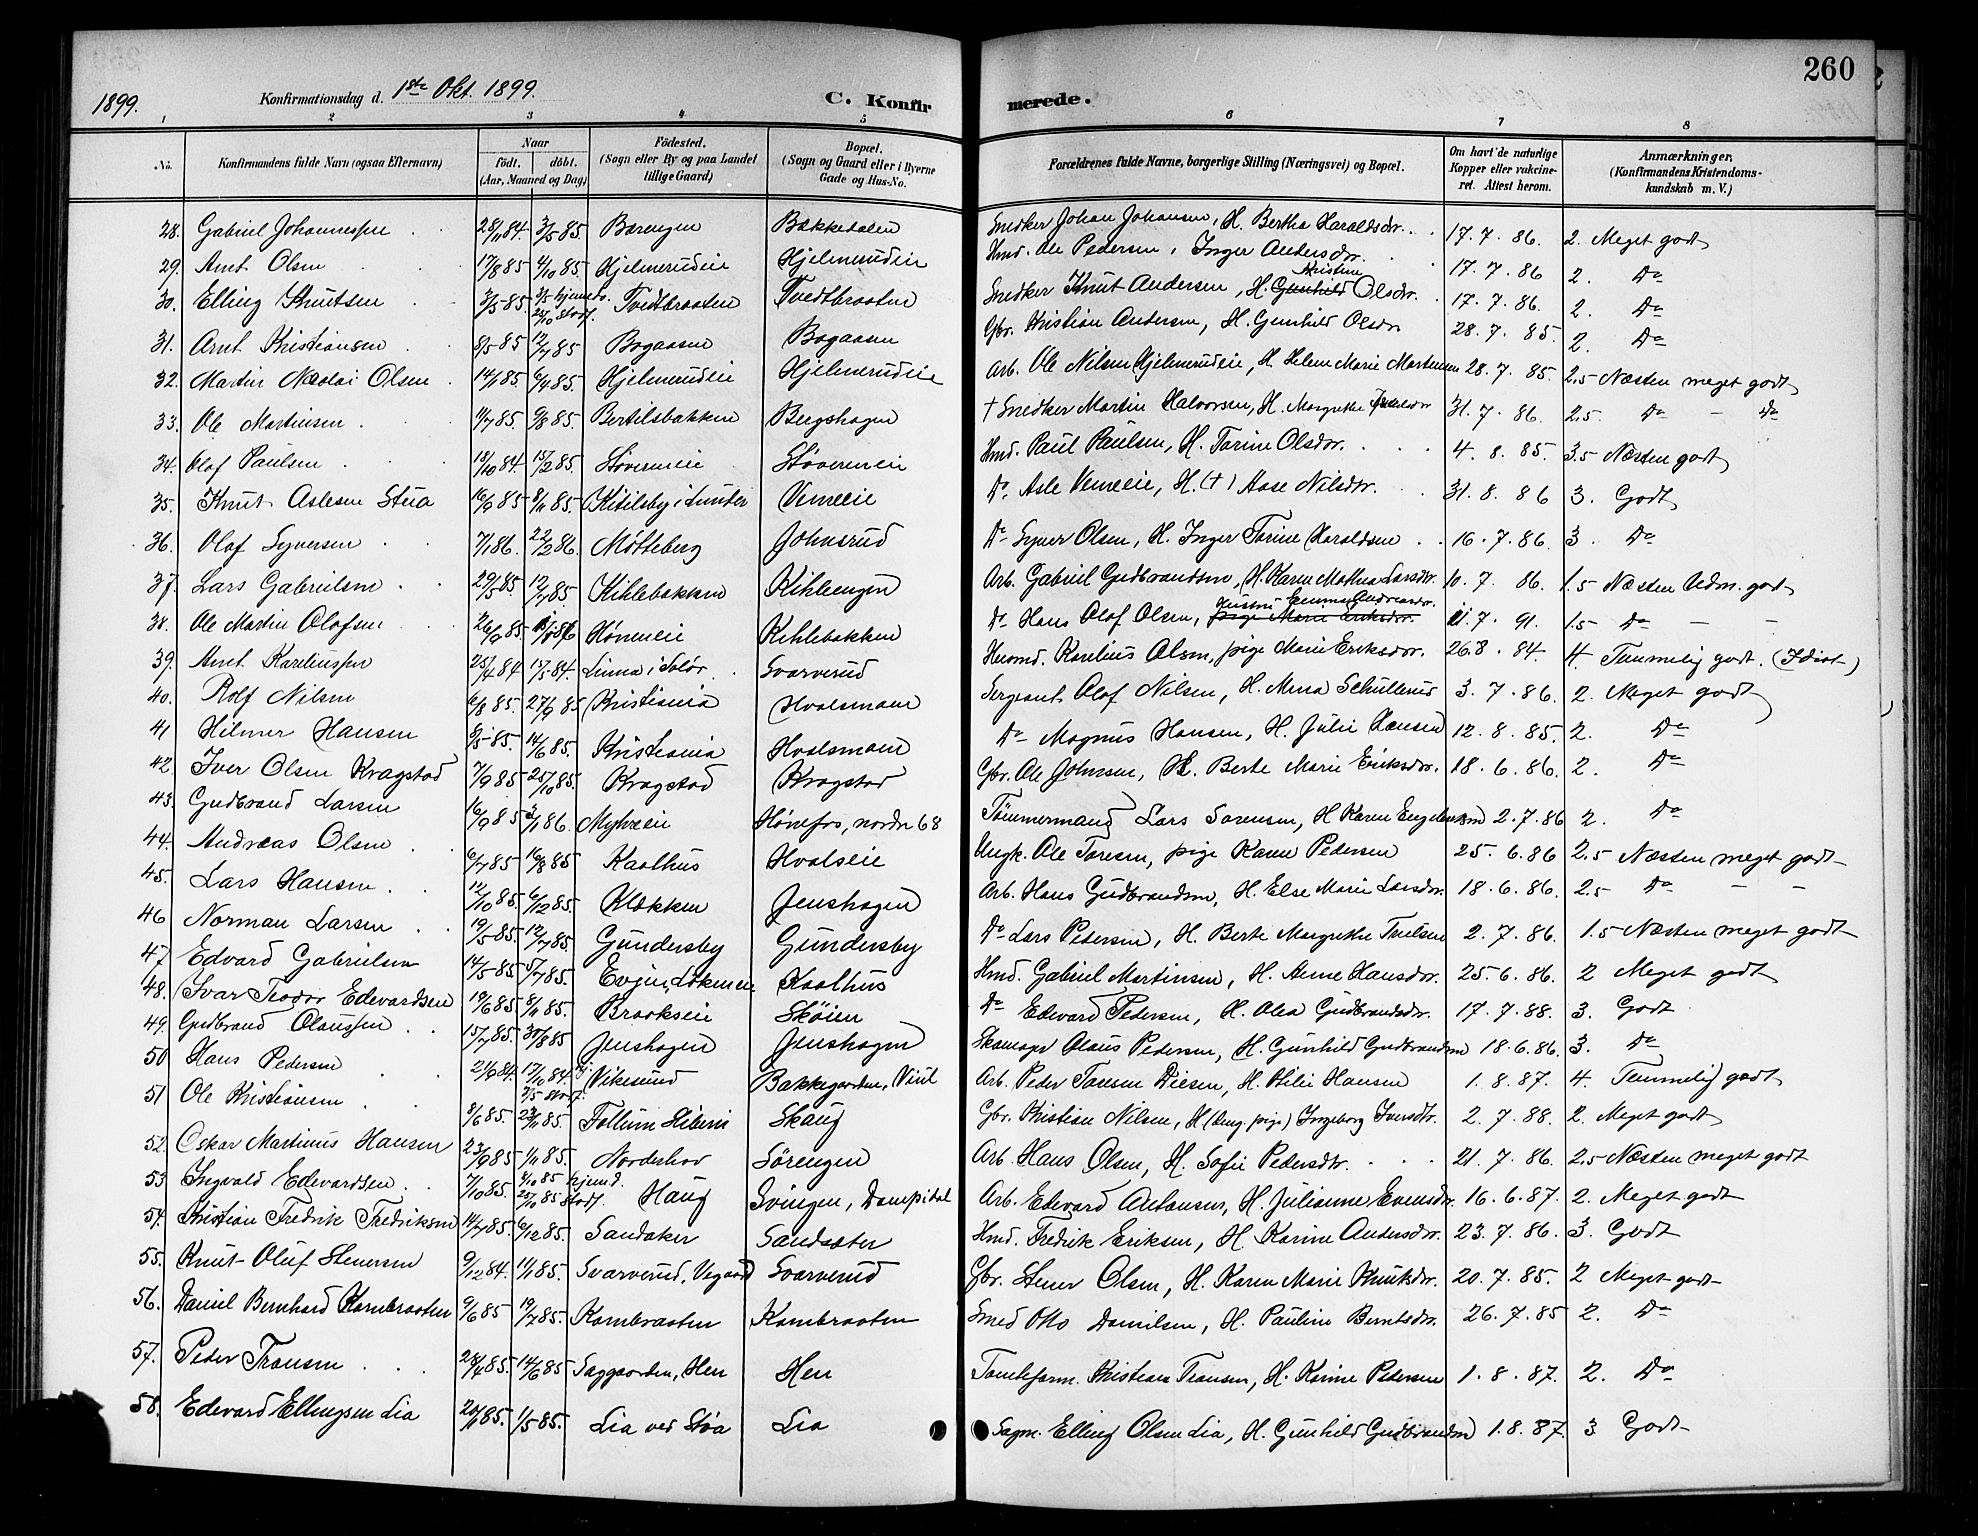 260
1899. Konfirmationsdag d. 1ste Okt. 1899. C. Konfirmerede.
1 2 3 4 5 6 7 8
No. Konfirmandens fulde Navn (ogsaa Efternavn) Naar født. døbt. (Aar, Maaned og Dag) Fødested. (Sogn eller By og paa Landet tillige Gaard) Bopæl. (Sogn og Gaard eller i Byerne Gade og Hus-No. Forældrenes fulde Navne, borgerlige Stilling (Næringsvei) og Bopæl. Om havt de naturlige Kopper eller vakcineret. Attest herom. Anmærkninger. (Konfirmandens Kristendomskundskab m. V.)
28. Gabriel Johannessen 28/11 84. 3/5 85. Børengen Bakkedalen Snedker Johan Johansen, H. Bertha Haraldsdr. 17.7.86. 2. Meget godt
29. Arnt Olsen 17/8 85 4/10 85. Hjelmerudeie Hjelmerudeie Hmd. Ole Pedersen, Inger Andersdr. 17.7.86 2. Do
30. Elling Knutsen 3/5 85. Tvedtbraaten Tvedtbraaten Snedker Knut Andersen, H. Gunhild Kristine Olsdr. 17.7.86. 2. Do
31. Arnt Kristiansen 8/5 85 12/7 85 Bogaasen Bogaasen Gbr. Kristian Andersen, H. Gunhild Olsdr 28.7.85. 2. Do
32. Martin Nicolai Olsen 14/1 85 6/4 85. Hjelmerudeie Hjelmerudeie Arb. Ole Nilsen Hjelmerudeie, H. Helene Marie Martinsen 28.7.85. 2,5 Næsten meget godt
33. Ole Martinsen 11/7 85. 9/8 85. Bertilsbakken Bergshagen † Snedker Martin Halvorsen, H. Margrethe 31.7.86. 2,5 Do - Do
34. Olaf Paulsen 18/10 84. 15/2 85. Støvereneie Støvereneie Hmd. Paul Paulsen, H. Torine Olsdr. 4.8.85. 3.5 Næsten godt
35. Knut Aslesen Stua 16/9 85 8/11 85. Kittilsby i Lunder Vemeeie Do. Asle Vemeeie, H. (†) Aase Nilsdtr. 31.8.86 3. Godt
36. Olaf Syversen 7/1 86. 22/2 86. Møtteberg Johnsrud Do Syver Olsen, H. Inger Torine Haraldsen 16.7.86. 3. Do
37. Lars Gabrielsen 29/5 85. 12/7 85. Kihlebakken Kihleengen Arb. Gabriel Gudbrandsen, H. Karen Mathea Larsdtr. 10.7.86. 1.5 Næsten Udm. godt
38. Ole Martin Olafsen 26/9 85. Høneneie Kihlebakken Do Hans Olaf Olsen, pige Marie Eriksdr. Hustru Gemine Andreasdr. 11.7.91. 1.5 Do - -
39. Arnt Karelinssen 25/4 84 15/5 84. Linna i Solør Svarverud Huomd. Karelius Olsen, pige Marie Eriksdr. 26.8.84. 4. Temmelig godt. (Idiot)
40. Rolf Nilsen 6/8 85. 27/9 85 Kristiania Hvalsmoen Sergeant Olaf Nilsen, H. Mina Schullerud 3.7.86. 2. Meget godt
41 Hilmer Hansen 5/5 85. 14/6 85. Kristiania Hvalsmoen Do Magnus Hansen, H. Julie Hansen 12.8.85. 2. Do
42. Iver Olsen Kragstad 7/9 85 25/10 85. Kragstad Kragstad Gbr. Ole Johnsen, H. Berte Marie Eriksdr. 18.6.86. 2. Do
43. Gudbrand Larsen 16/9 85 3/1 86. Myhreeie Hønefos, nordre 68 Tømmermand Lars Sørensen, H Karen Engebretsen 2.7.86 2. Do
44. Andreas Olsen 6/7 85 16/8 85 Kaalhus Hvalseie Ungk. Ole Toresen, pige Karen Pedersen 25.6.86 2.5 Næsten meget godt
45. Lars Hansen 12/10 85. 6/12 85. Klækken Jenshagen Arb. Hans Gudbrandsen, H. Else Marie Larsdr. 18.6.86. 2.5 Do - -
46 Norman Larsen 19/5 85. 12/7 85. Gundersby Gundersby Do Lars Pedersen, H. Berte Margrethe Trulsen 2.7.86. 1.5 Næsten meget godt
47. Edvard Gabrielsen 14/5 85 5/7 85. Evjen, Lökeneie Kaalhus Hmd. Gabriel Martinsen, H. Anne Hansdr. 25.6.86. 2 Meget godt
48. Ivar Teodor Edevardsen 19/6 85. 8/11 85. Braakseie Skøien Do Edevard Pedersen, H. Olea Gudbrandsdr. 17.7.88. 3. Godt
49. Gudbrand Olaussen 15/7 85. 30/8 85 Jenshagen Jenshagen Skomager Olaus Pedersen, H. Gunhild Gudbrandsen 18.6.86. 3. Do
50 Hans Pedersen 21/9 84. 17/10 84. Vikesund Bakkegaarden, Viul Arb. Peder Toresen Diesen, H. Hilie Hansen 1.8.87. 4. Temmelig godt
51 Ole Kristiansen 8/6 85. 22/11 85. Follum Hiberni Skaug Gbr. Kristian Nilsen, H (dengg. pige) Ingeborg Iversdtr. 2.7.88. 2. Meget godt
52. Oskar Martinus Hansen 23/9 85 1/11 85. Norderhov Sørengen Arb. Hans Olsen, H. Sofie Pedersdtr. 21.7.86. 2.5 Næsten meget godt
53 Ingvald Edevardsen 7/10 85. 9/10 85 hjemd. 25/10 85 stadf. Haug Svingen, Dampsdal Arb. Edevard Antonsen, H. Julianne Evensdr. 16.6.87. 2. Meget godt
54. Kristian Fredrik Fredriksen 14/7 85. 6/12 85. Sandaker Sandsæter Hmd. Fredrik Eriksen, H. Karine Andersdr. 23.7.86. 3. Godt
55. Knut Oluf Stenersen 9/12 84. 11/1 85. Svarverud, Vegaard Svarverud Gbr. Stener Olsen, H. Karen Marie Knutsdr. 20.7.85. 2 Meget godt
56. Daniel Bernhard Kornbraaten 9/6 85 19/7 85. Kornbraaten Kornbraaten Smed Otto Danielsen, H. Pauline Berntsdr. 26.7.85 2. Do
57. Peder Fransen 28/4 85. 14/6 85 Saggaarden, Hen Hen Tomteform. Kristian Fransen, H. Karine Pedersen 1.8.87. 2. Do
58. Edevard Ellingsen Lia 20/1 85. 1/5 85. Lia ved Støa Lia Sagm. Elling Olsen Lia, H. Gunhild Gudbrandsen 1.8.87. 3 Godt